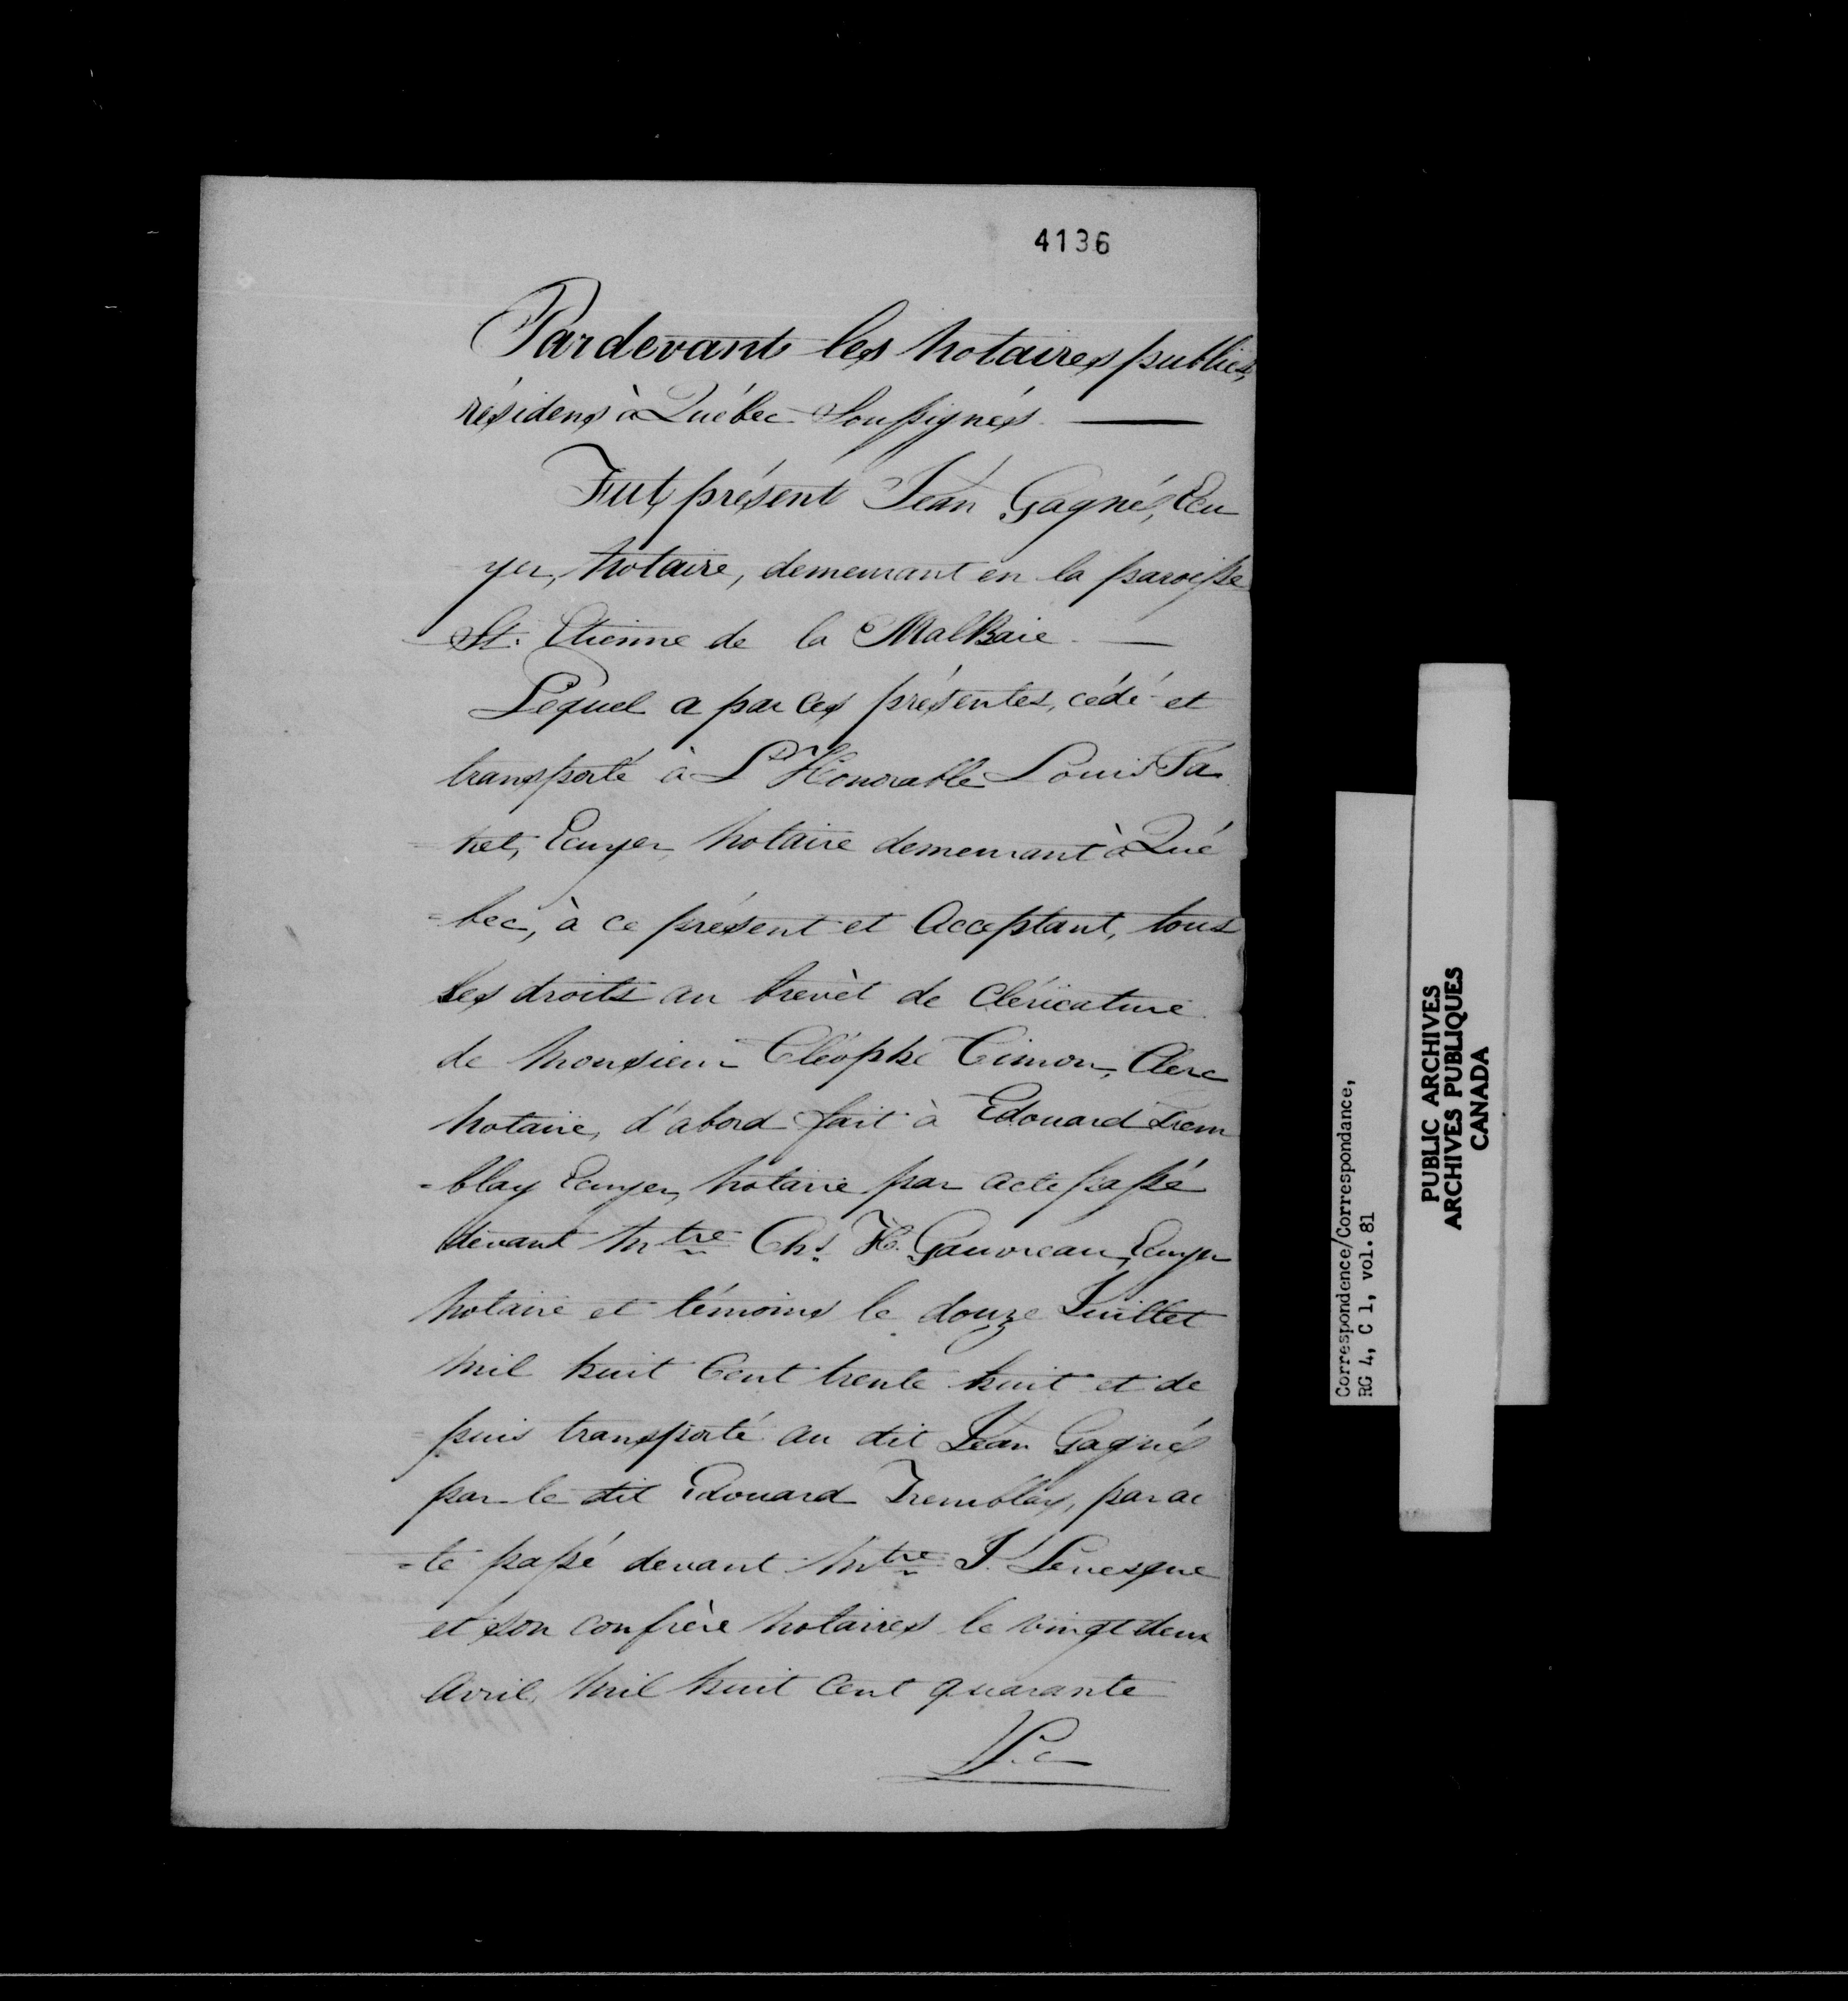 4136
Pardevant les Notaires publics,
résidens à Québec Soussignés.
Fut présent Jean Gagné, Ecu
yer, Notaire, demeurant en la paroisse
St. Etienne de la MalBaie.
Lequel a par ces présentes, cédé et
transporté à L'Honorable Louis Pa
net, Ecuyer, Notaire demeurant à Qué
=bec, à ce présent et Acceptant, tous
ses droits au brevèt de Cléricature
de Monsieur Cléophe Cimon, Clerc
Notaire, d'abord fait à Edouard Trem
=blay Ecuyer, Notaire par acte passé
devant Mtre Chs. H. Gauvreau, Ecuyer
Notaire et témoins le douze Juillet
Mil huit Cent trente huit et de
=puis transporté au dit Jean Gagné
par le dit Edouard Tremblay, par ac
=te passé devant Mtre J. Levesque
et son confrère Notaires le vingt deux
Avril, Mil huit Cent quarante
Correspondence/Correspondance,
RG 4, C 1, vol. 81
PUBLIC ARCHIVES
ARCHIVES PUBLIQUES
CANADA